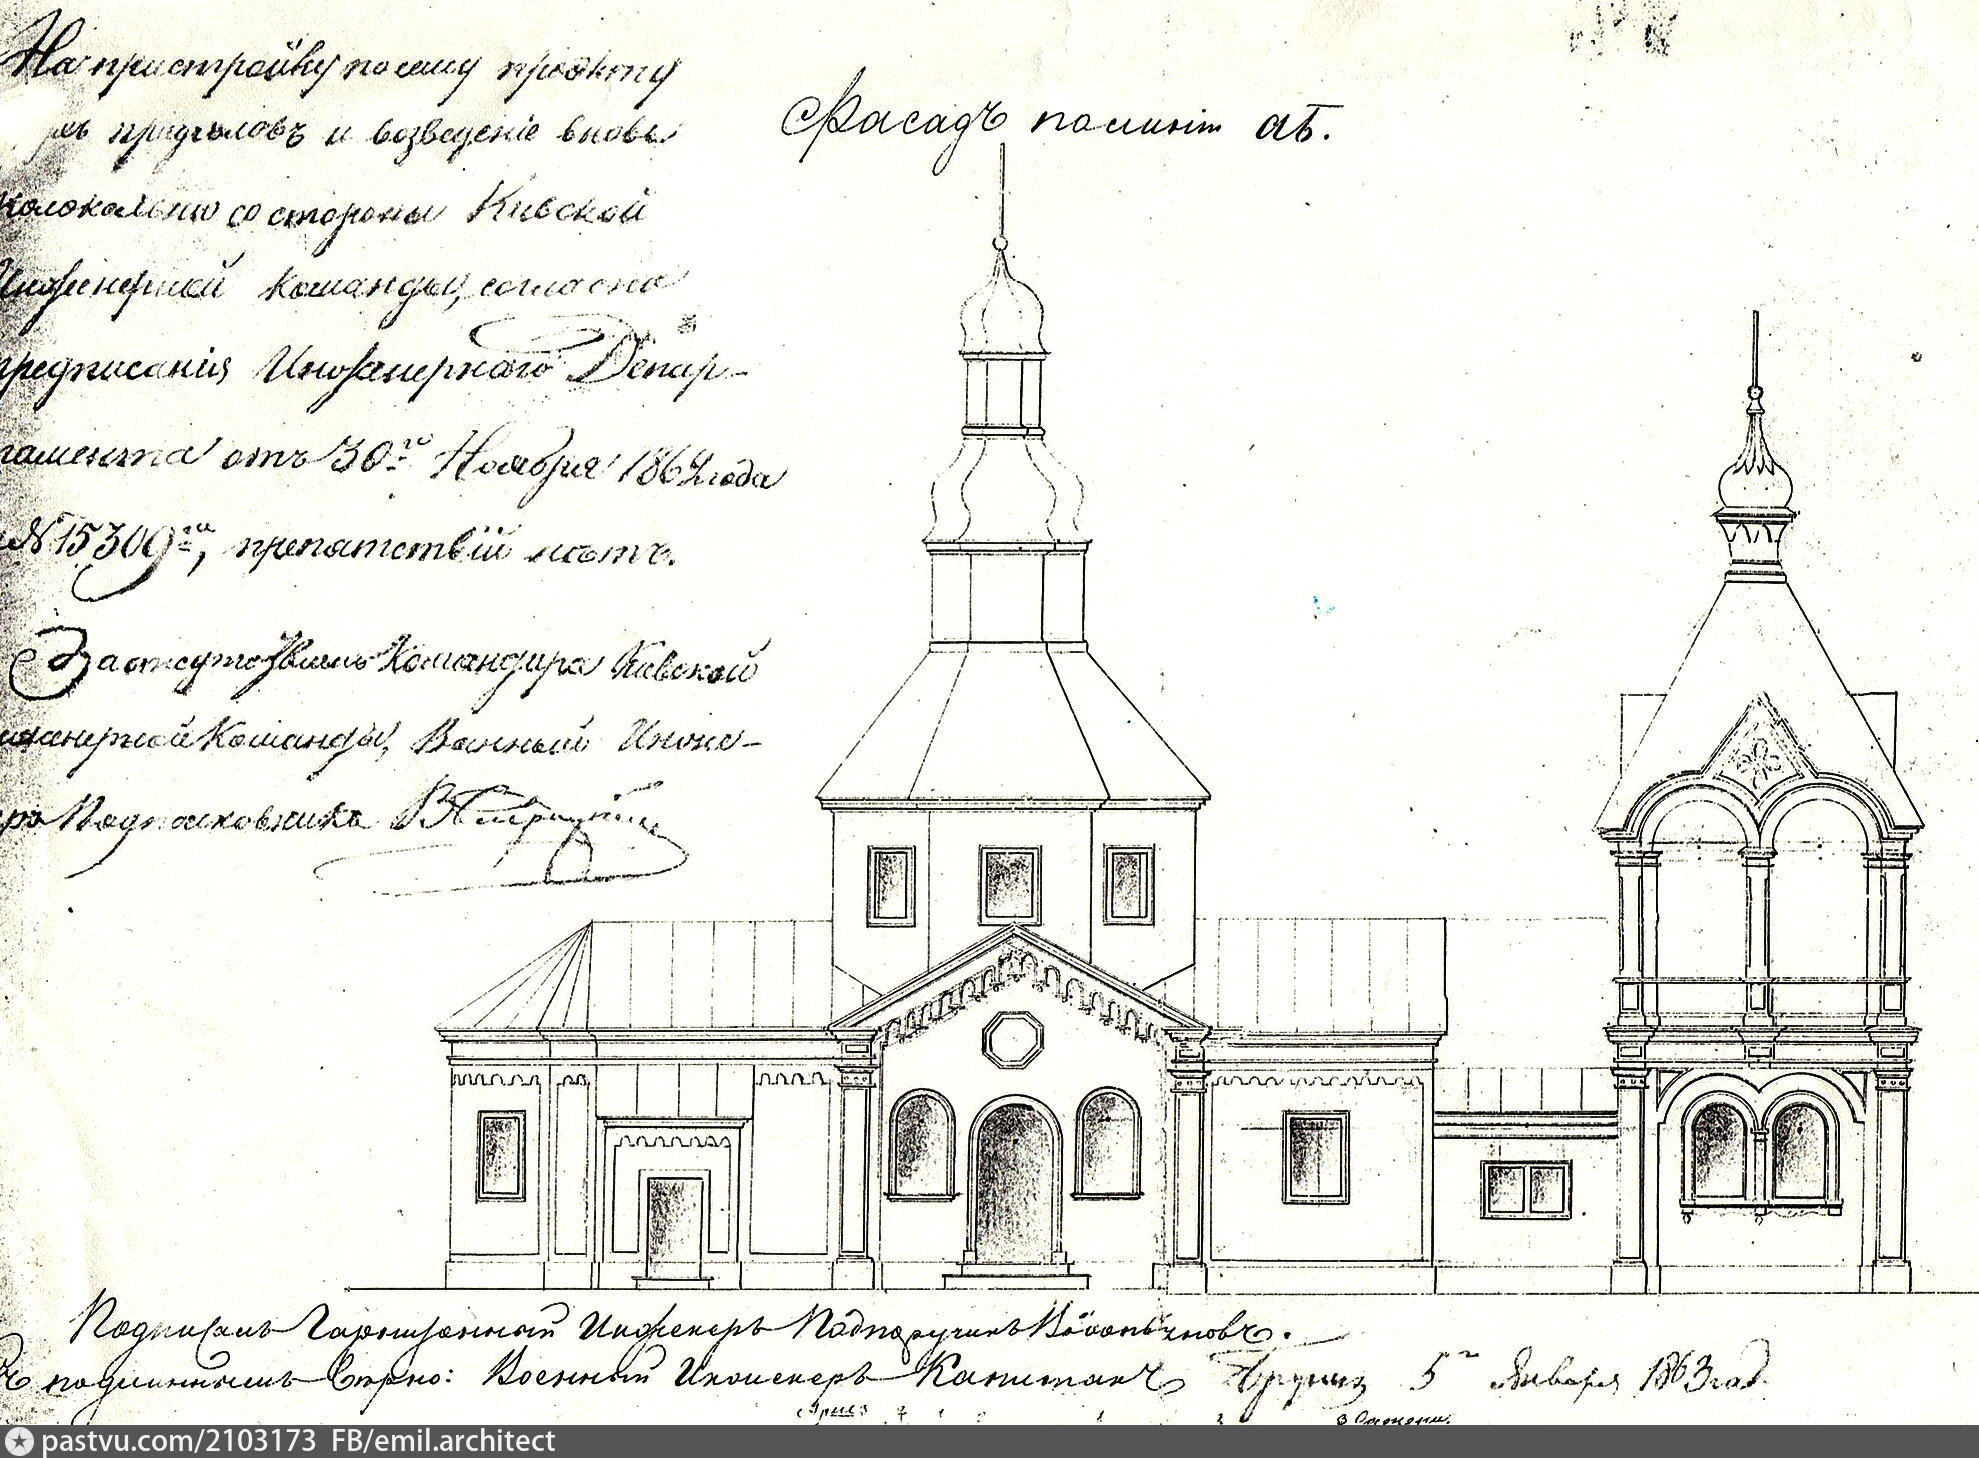 На пристройку по сему проэкту
придѣловъ и возведеніе вновь
колокольни со стороны Кіевской
Инженерной Команды, согласно
предписанія Инженернаго Депар-
тамента отъ 30го Ноября 1862 года
№ 15309, препятствій нѣтъ.
За отсутствіемъ Командира Кіевской
Инженерной Команды, Военный Инже-
неръ Подполковникъ
Фасадъ по линіи аб.
Подписалъ Гарнизонный Инженеръ Подпоручикъ
Съ подлиннымъ вѣрно: Военный Инженеръ Капитанъ 5 Января 1863 год
3 Сажени.
pastvu.com/2103173 FB/emil.architect